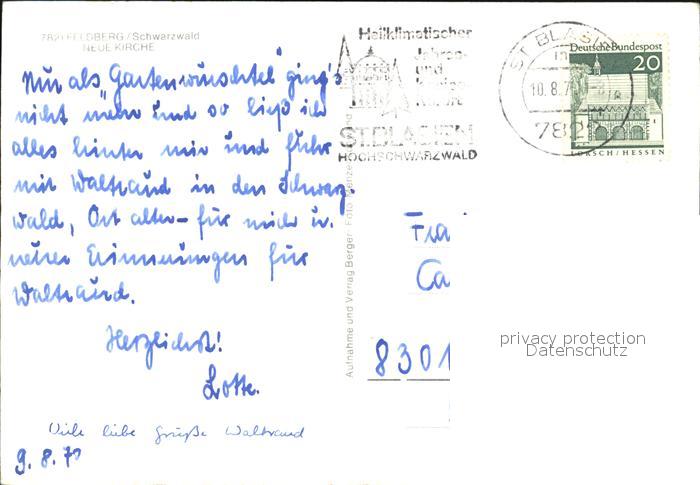 7821 FELDBERG / Schwarzwald
NEUE KIRCHE
Nur als "Gartenwuschtel" ging's
nicht mehr und so ließ ich
alles hinter mir und fuhr
mit Waltraud in den Schwarz-
wald, Ort alter - für mich u.
neuer Erinnerungen für
Waltraud.
Herzlichst!
Lotte.
Viele liebe Grüße Waltraud
9. 8. 70
Aufnahme und Verlag Berger, Foto
Heilklimatischer
Jahres-
und
Kneipp-
Kurort
ST. BLASIEN
HOCHSCHWARZWALD
ST. BLASIEN
10. 8. 7
7822
Deutsche Bundespost
20
LORSCH / HESSEN
Fra
Ca
8301
privacy protection
Datenschutz